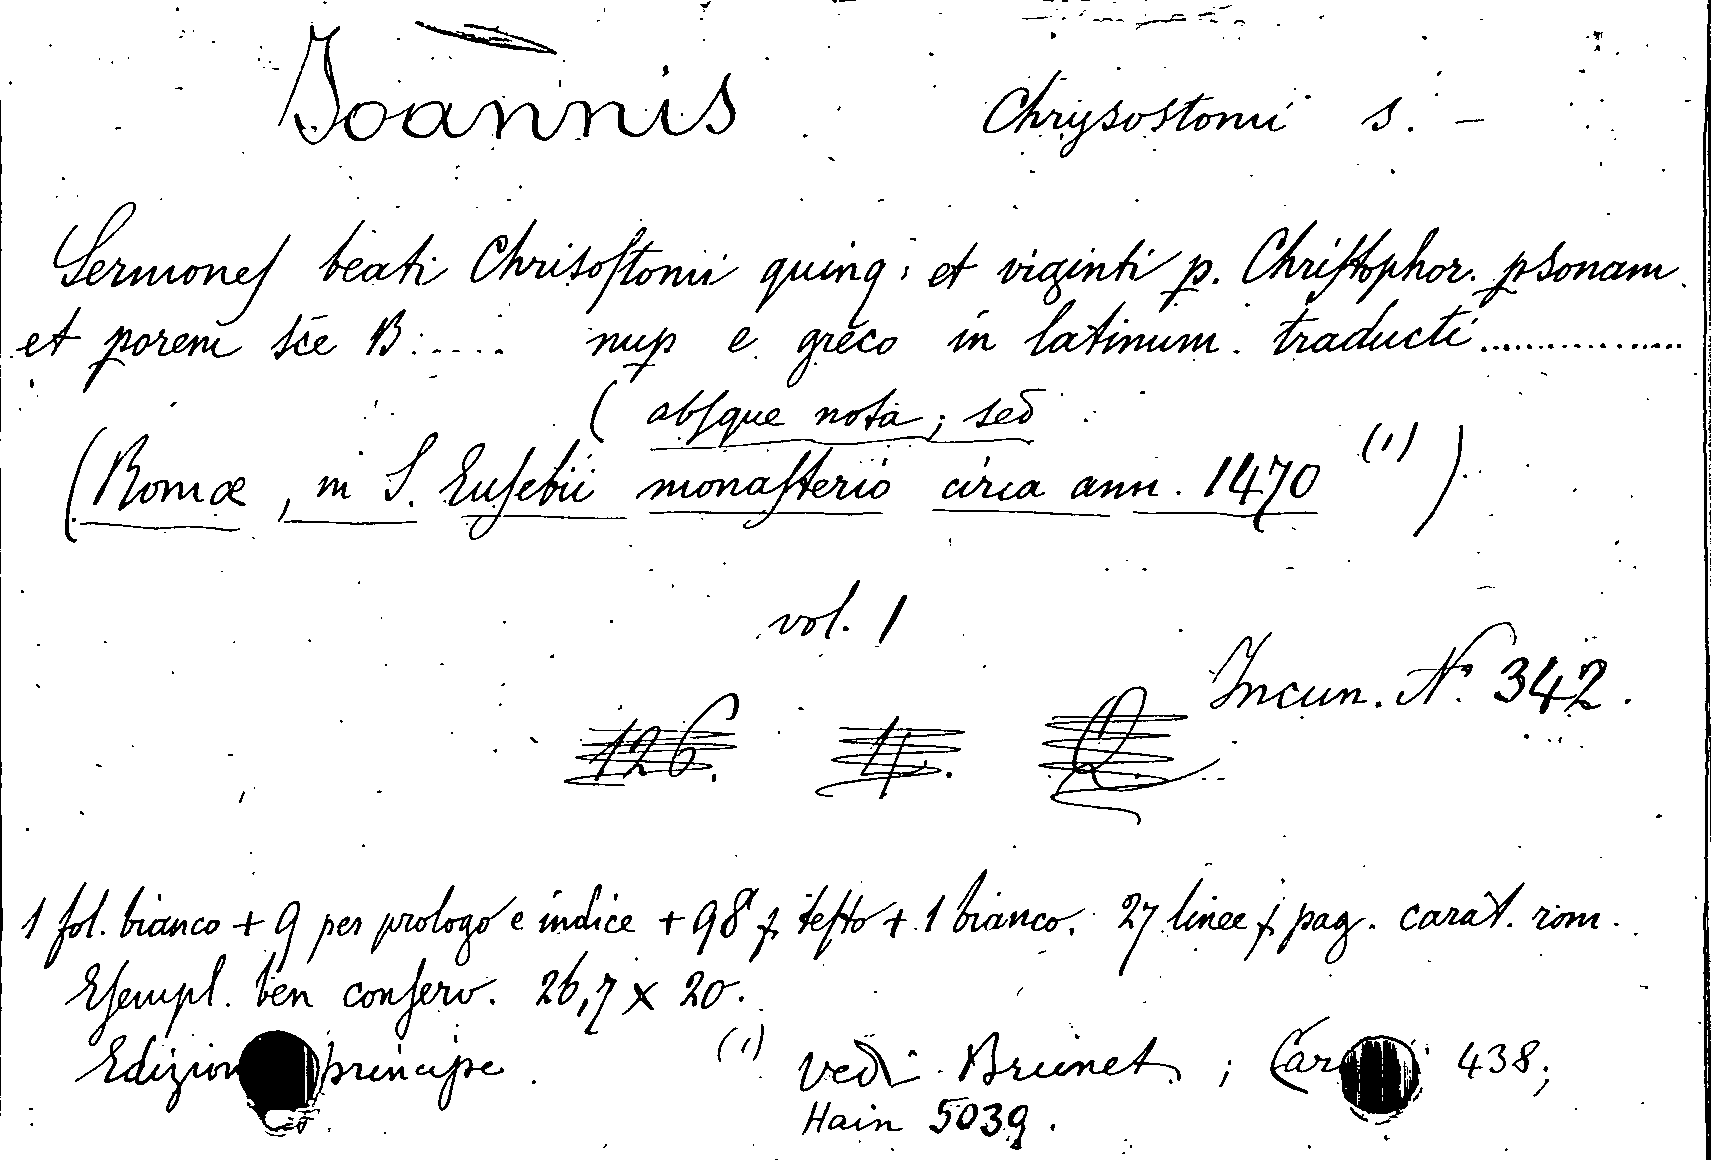 Ioannis Chrysostomi S. —
Sermones beati Chrisostomi quinq: et viginti p. Christophor. psonam
et porem sce B:..... nup e greco in latinum. traducti................
( absque nota; sed
(Romæ, in S. Eusebii monasterio circa ann. 1470 (1) )
vol. 1
Incun. N. 342.
126. 4. Q
1 fol. bianco + 9 per prologo e indice + 98 p. testo + 1 bianco. 27 linee p. pag. carat. rom.
Esempl. ben conserv. 26,7 x 20.
principe. (1) vedi Brunet; 438;
Hain 5039.